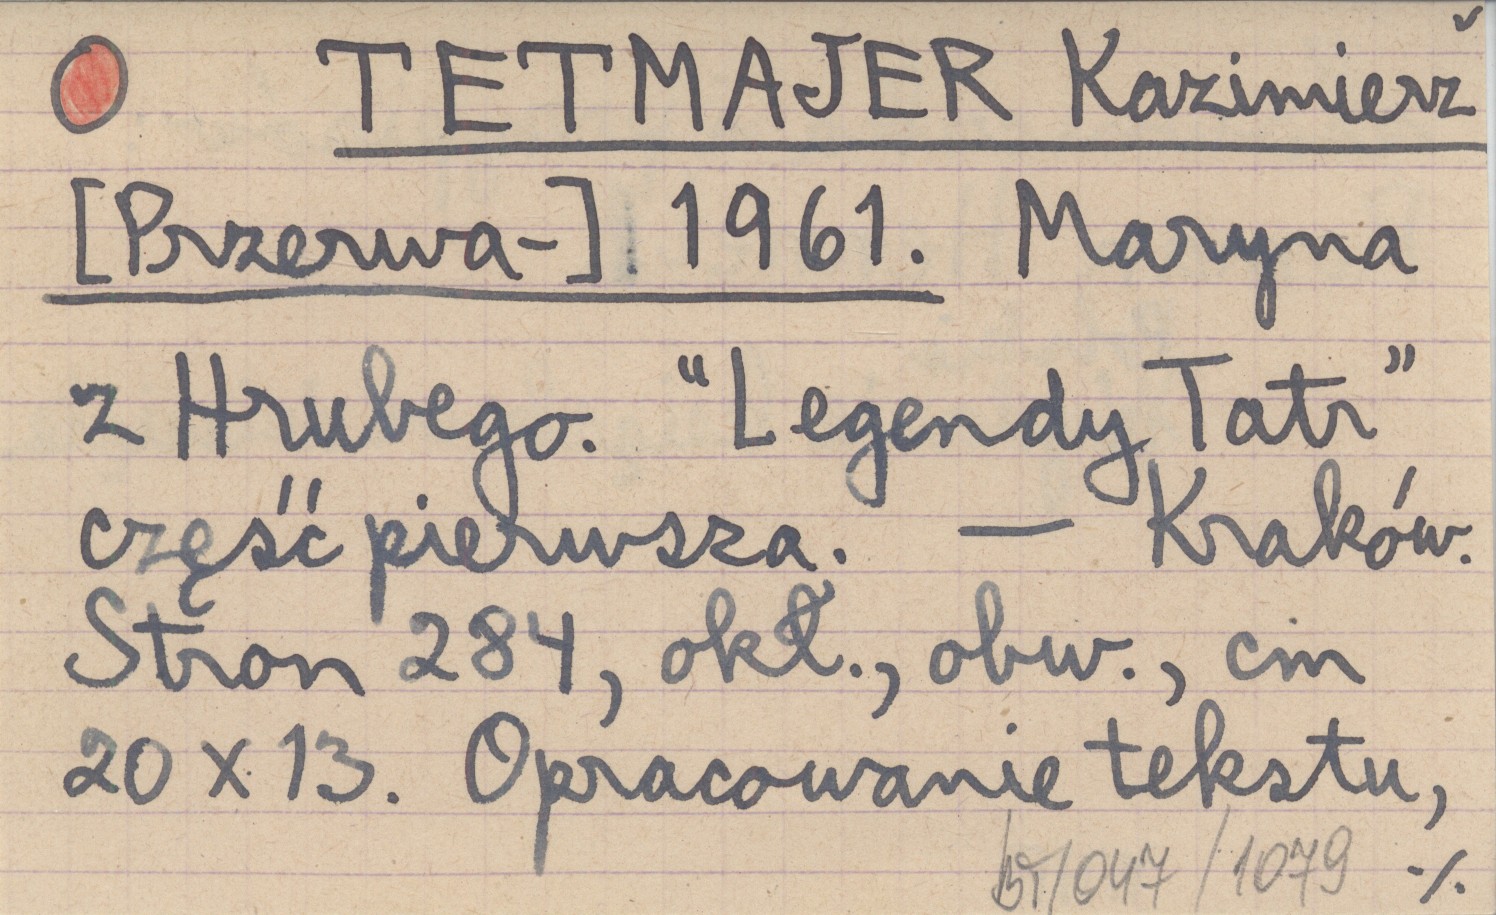 TETMAJER Kazimierz
[Przerwa-] 1961. Maryna
z Hrubego. “Legendy Tatr”
część pierwsza. — Kraków.
Stron 284, okł., obw., cm
20 x 13. Opracowanie tekstu,
/047/1079 ./.